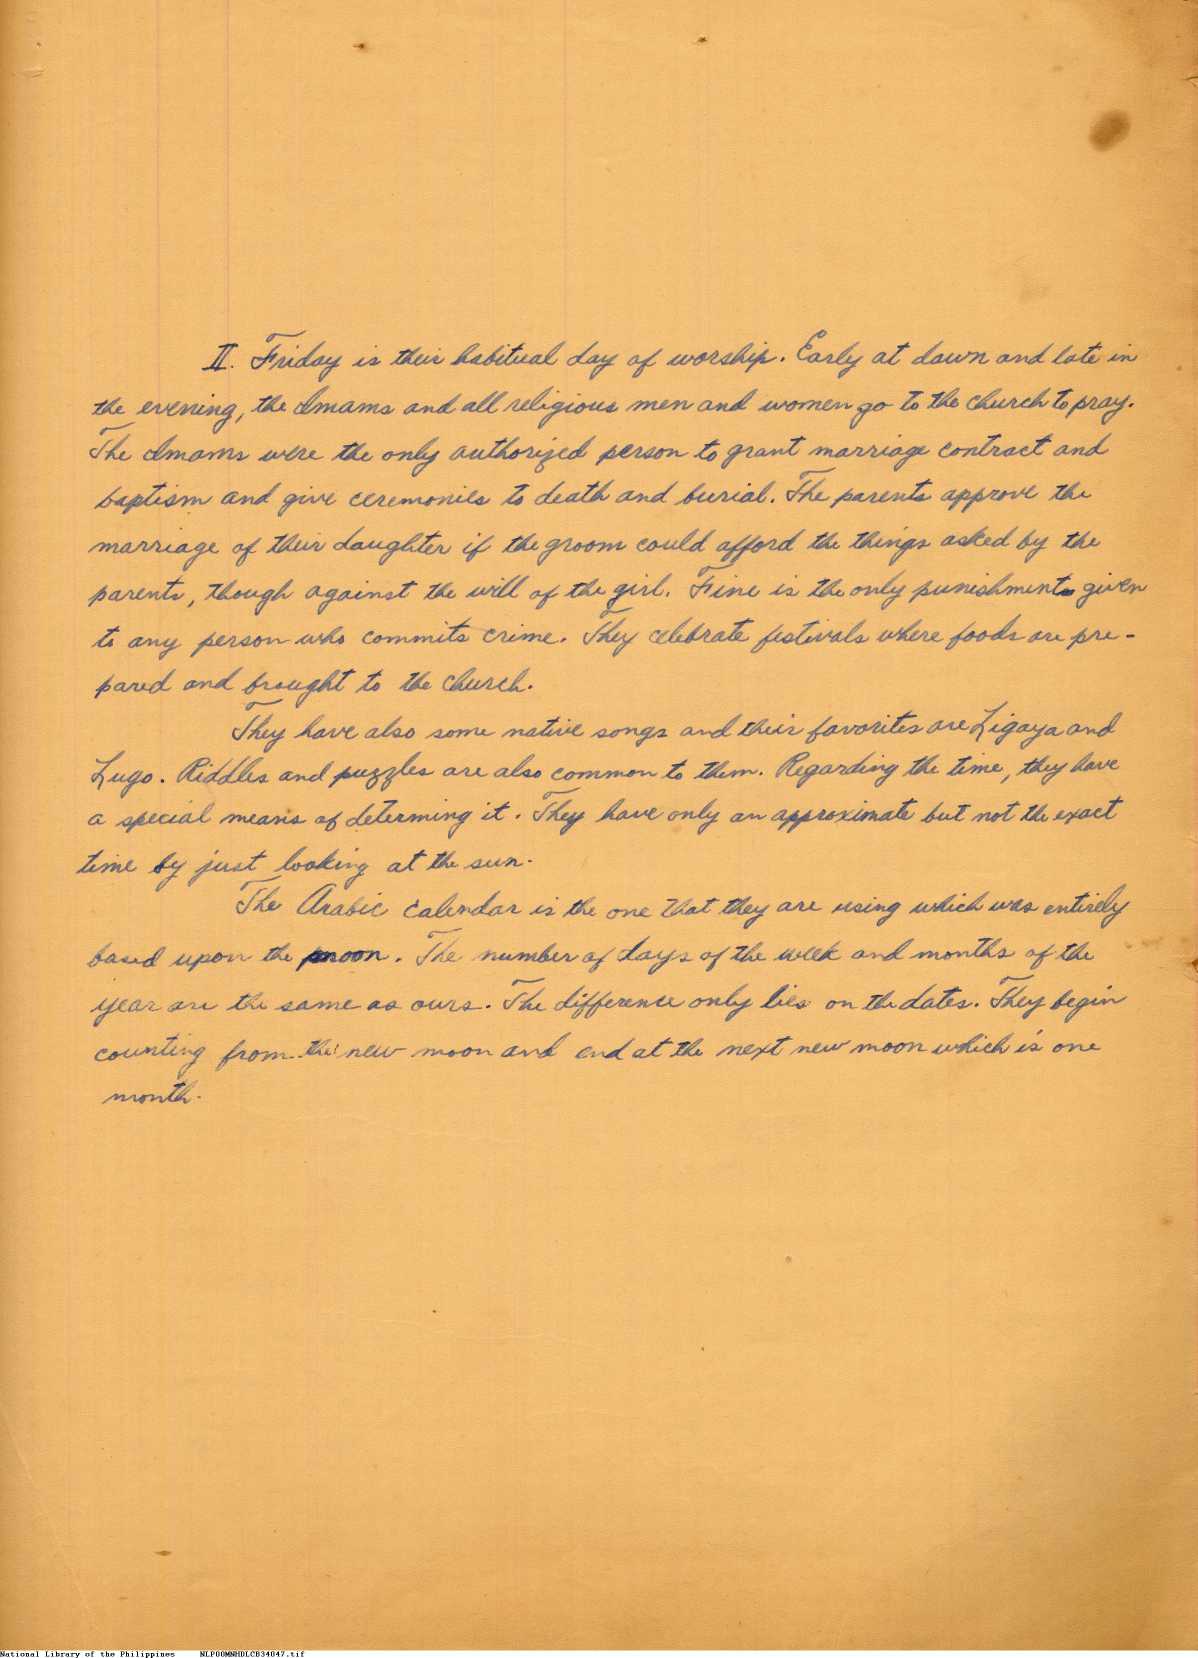 II. Friday is their habitual day of worship. Early at dawn and late in
the evening, the Imams and all religious men and women go to the church to pray.
The Imams were the only authorized person to grant marriage contract and
baptism and give ceremonies to death and burial. The parents approve the
marriage of their daughter if the groom could afford the things asked by the
parents, though against the will of the girl. Fine is the only punishment given
to any person who commits crime. They celebrate festivals where foods are pre-
pared and brought to the church.
They have also some native songs and their favorites are Ligaya and
Lugo. Riddles and puzzles are also common to them. Regarding the time, they have
a special means of determing it. They have only an approximate but not the exact
time by just looking at the sun.
The Arabic Calendar is the one that they are using which was entirely
based upon the moon. The number of days of the week and months of the
year are the same as ours. The difference only lies on the dates. They begin
counting from the new moon and end at the next new moon which is one
month.
National Library of the Philippines NLP00MNHDLCB34047.tif